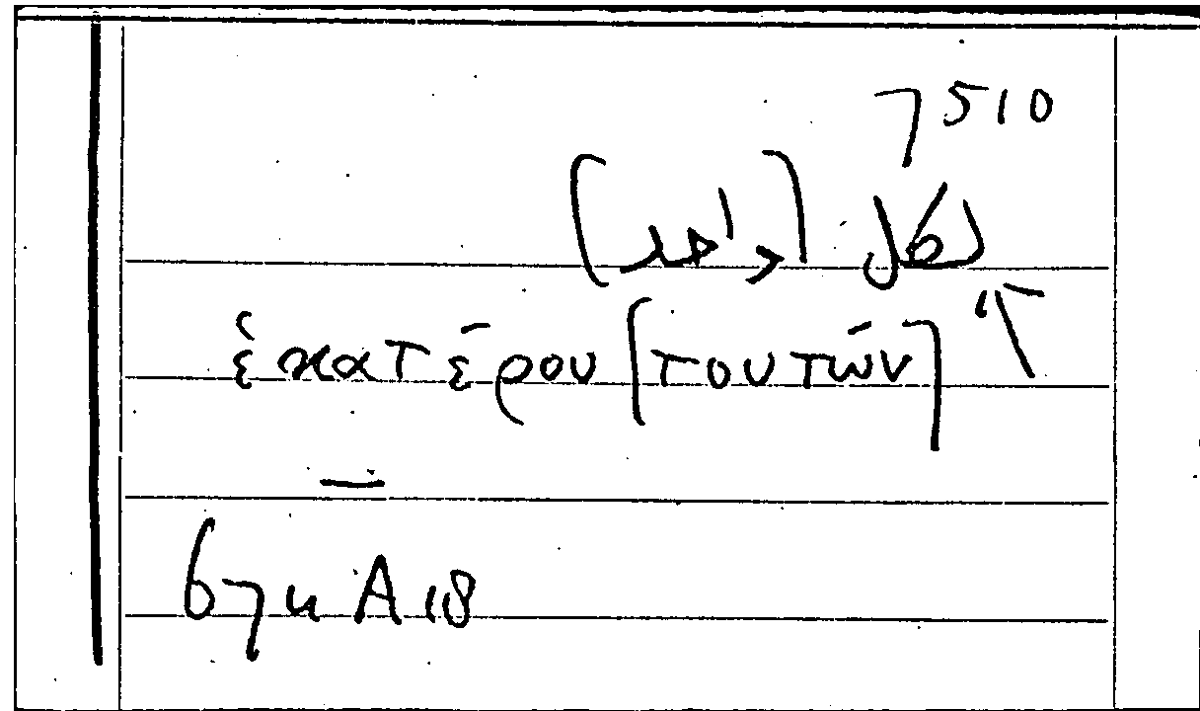 7510
لكل [واحد]
ἑκατέρου [τουτών]
674 A 18